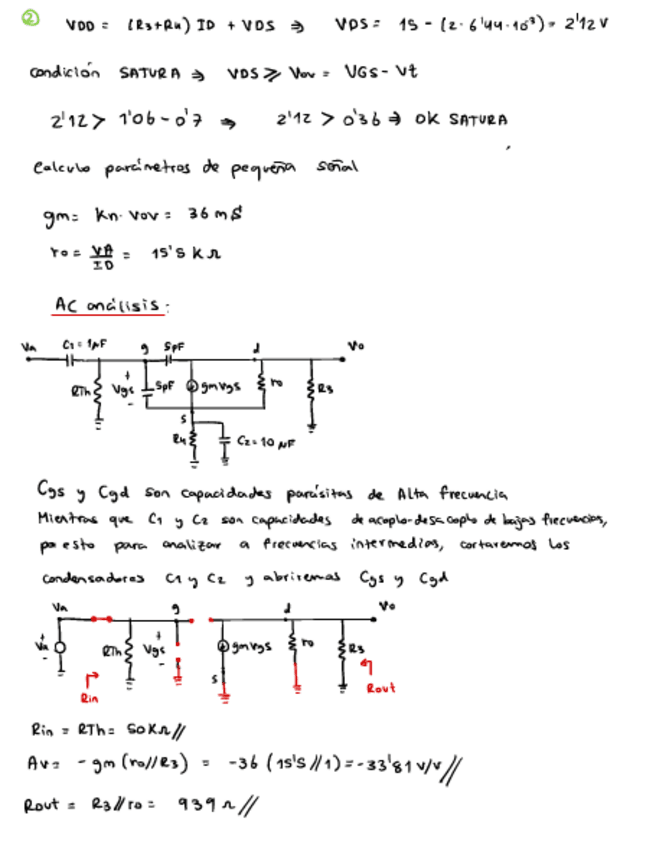 2
VDD = (R3+R4) ID + VDS ⇒ VDS = 15 - (2·6'44·10³) = 2'12 V
condición SATURA ⇒ VDS ≥ Vov = VGS - Vt
2'12 > 1'06 - 0'7 ⇒ 2'12 > 0'36 ⇒ OK SATURA
Calculo parámetros de pequeña señal
gm = Kn · Vov = 36 mS
ro = VA/ID = 15'5 KΩ
AC análisis:
Va C1 = 1μF g 5pF d Vo
RTh + Vgs - 5pF gmvgs ro R3
s
R4 C2 = 10 μF
Cgs y Cgd son capacidades parásitas de Alta frecuencia
Mientras que C1 y C2 son capacidades de acoplo-desacoplo de bajas frecuencias,
po esto para analizar a frecuencias intermedias, cortaremos los
condensadores C1 y C2 y abriremos Cgs y Cgd
Va g d Vo
Va + - RTh Vgs + - gmvgs ro R3
s
Rin Rout
Rin = RTh = 50KΩ//
Av = -gm (ro//R3) = -36 (15'5//1) = -33'81 V/V//
Rout = R3//ro = 939 Ω//